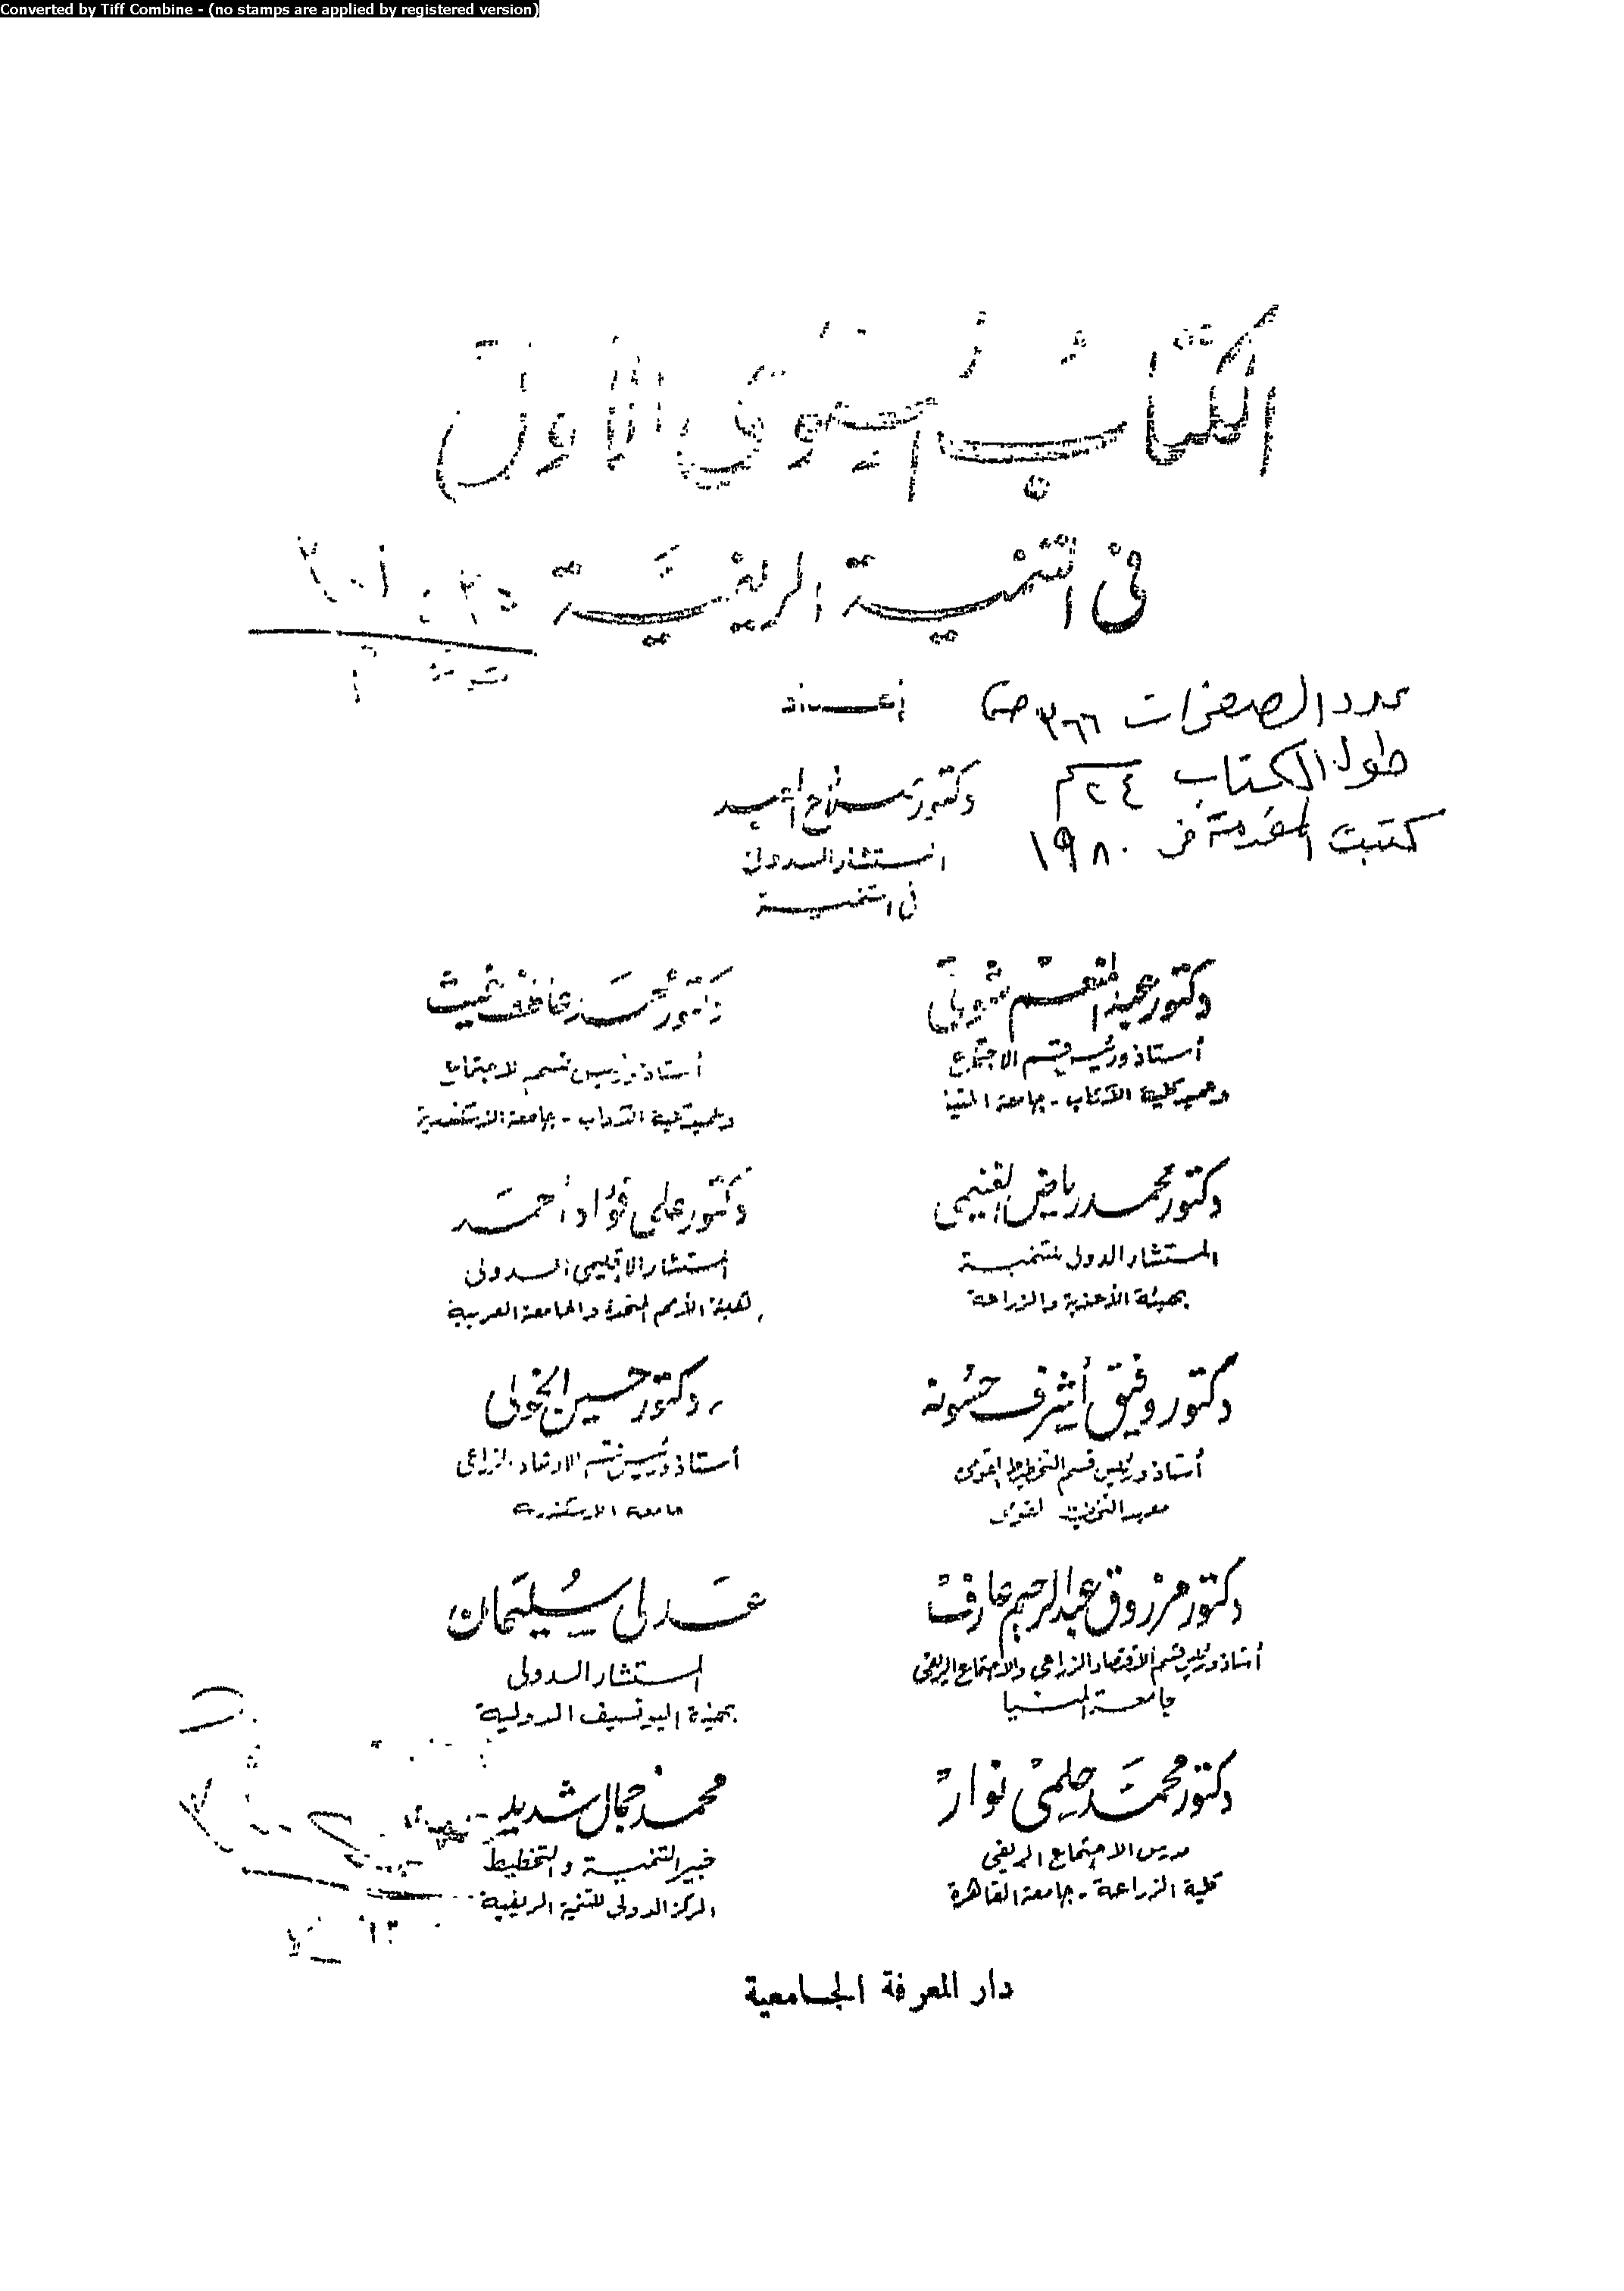 Converted by Tiff Combine - (no stamps are applied by registered version)
الكتاب السنوى الأول
فى التنمية الريفية
عدد الصفحات ٣٦٦
إعداد
طول الكتاب ٢٤
دكتور صلاح العبد
كتبت المقدمة فى ١٩٨٠
المستشار الدولى
فى التنمية
دكتور عبد المنعم شوقى
أستاذ ورئيس قسم الاجتماع
وعميد كلية الآداب - جامعة المنيا
دكتور محمد عاطف غيث
أستاذ ورئيس قسم الاجتماع
وعميد كلية الآداب - جامعة الاسكندرية
دكتور محمد رياض الغنيمى
المستشار الدولى للتنمية
بهيئة الأغذية والزراعة
دكتور على فؤاد أحمد
المستشار الاقليمى الدولى
لهيئة الأمم المتحدة والجامعة العربية
دكتور وفيق أشرف حسونة
أستاذ ورئيس قسم التخطيط القومى
معهد التخطيط القومى
دكتور حسين الخولى
أستاذ ورئيس قسم الارشاد الزراعى
جامعة الاسكندرية
دكتور مرزوق عبد الرحيم عارف
أستاذ ورئيس قسم الاقتصاد الزراعى والاجتماع الريفى
جامعة المنيا
عدلى سليمان
المستشار الدولى
بهيئة اليونسيف الدولية
دكتور محمد حلمى نوار
مدرس الاجتماع الريفى
كلية الزراعة - جامعة القاهرة
محمد جمال شديد
خبير التنمية والتخطيط
المركز الدولى للتنمية الريفية
دار المعرفة الجامعية